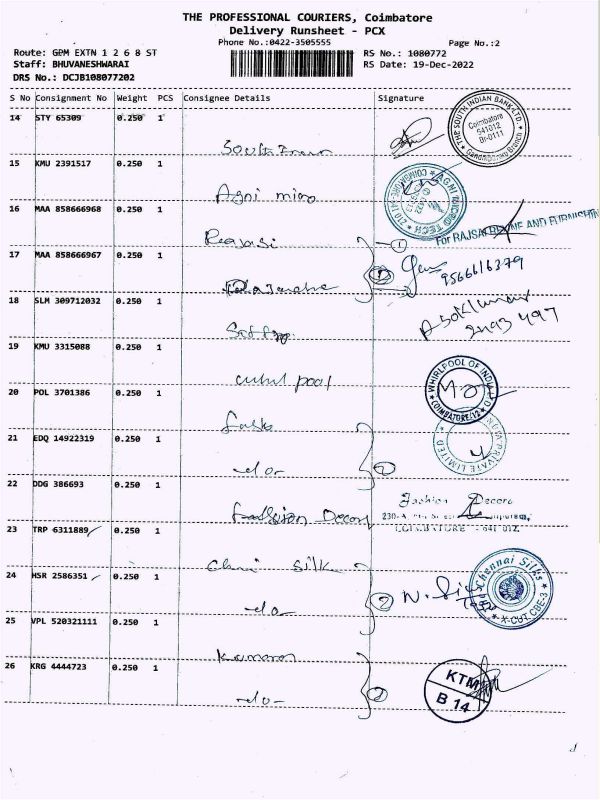 THE PROFESSIONAL COURIERS, Coimbatore
Delivery Runsheet - PCX
Phone No.:0422-3505555
Page No.:2
Route: GPM EXTN 1 2 6 8 ST
RS No.: 1080772
Staff: BHUVANESHWARAI
RS Date: 19-Dec-2022
DRS No.: DCJB108077202
S No Consignment No Weight PCS Consignee Details Signature
14 STY 65309 0.250 1
THE SOUTH INDIAN BANK LTD
Coimbatore
641012
Br-0111
Gandhipuram Branch
15 KMU 2391517 0.250 1
Agni micro
AGNI MICRO TECH
16 MAA 858666968 0.250 1
1
17 MAA 858666967 0.250 1
9566616379
18 SLM 309712032 0.250 1
Asok kumar
19 KMU 3315088 0.250 1
pool
WHIRLPOOL OF INDIA LTD
COIMBATORE-12
20 POL 3701386 0.250 1
PRIVATE LIMITED
21 EDQ 14922319 0.250 1
-do-
2
22 DDG 386693 0.250 1
Fashion Decors
Fashion Decors
COIMBATORE - 641 012.
23 TRP 6311889 0.250 1
Silk
24 HSR 2586351 0.250 1
-do-
2
Chennai Silks
X-CUT, CBE-3
25 VPL 520321111 0.250 1
Kumaran
26 KRG 4444723 0.250 1
-do-
2
KTM
B 14